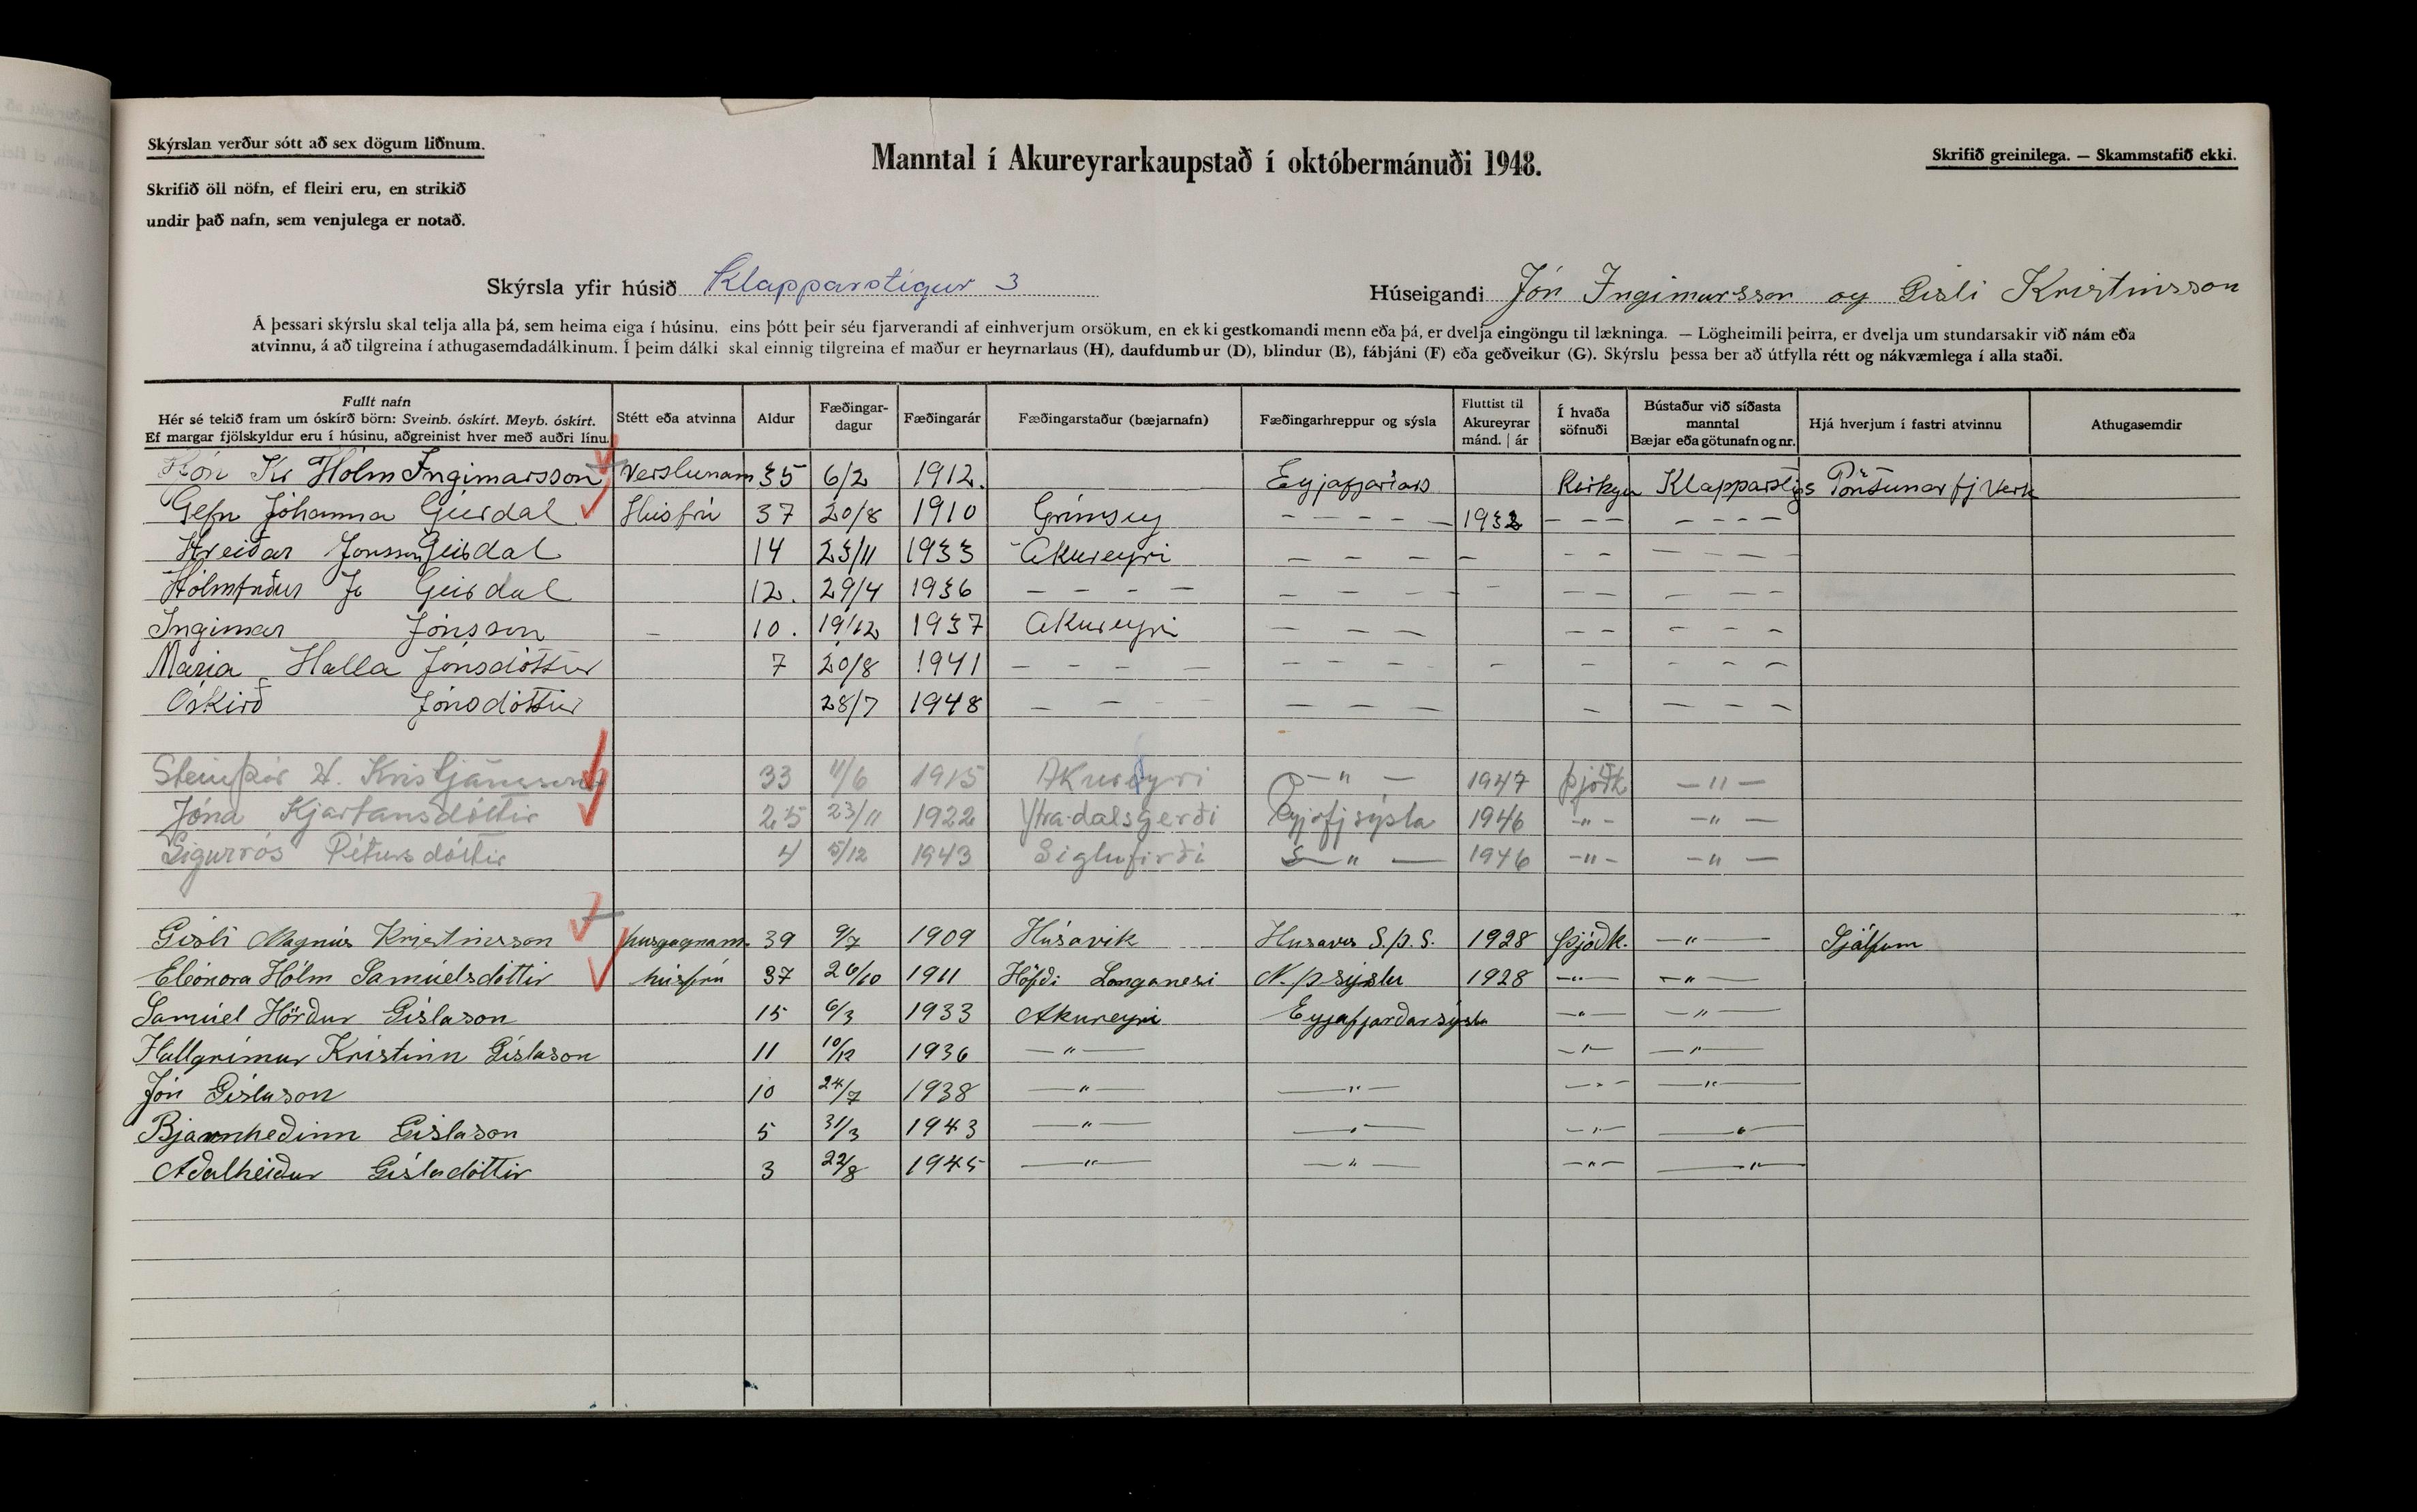 Skýrslan verður sótt að sex dögum liðnum.
Skrifið öll nöfn, ef fleiri eru, en strikið
undir það nafn, sem venjulega er notað.
Manntal í Akureyrarkaupstað í októbermánuði 1948.
Skrifið greinilega. — Skammstafið ekki.
Skýrsla yfir húsið Klapparstígur 3
Húseigandi Jón Ingimarsson og Gísli Kristinsson
Á þessari skýrslu skal telja alla þá, sem heima eiga í húsinu, eins þótt þeir séu fjarverandi af einhverjum orsökum, en ekki gestkomandi menn eða þá, er dvelja eingöngu til lækninga. — Lögheimili þeirra, er dvelja um stundarsakir við nám eða
atvinnu, á að tilgreina í athugasemdadálkinum. Í þeim dálki skal einnig tilgreina ef maður er heyrnarlaus (H), daufdumbur (D), blindur (B), fábjáni (F) eða geðveikur (G). Skýrslu þessa ber að útfylla rétt og nákvæmlega í alla staði.
Fullt nafn Hér sé tekið fram um óskírð börn: Sveinb. óskírt. Meyb. óskírt. Ef margar fjölskyldur eru í húsinu, aðgreinist hver með auðri línu. Stétt eða atvinna Aldur Fæðingar-dagur Fæðingarár Fæðingarstaður (bæjarnafn) Fæðingarhreppur og sýsla Fluttist til Akureyrar mánd. | ár Í hvaða söfnuði Bústaður við síðasta manntal Bæjar eða götunafn og nr. Hjá hverjum í fastri atvinnu Athugasemdir
Jón Kr Hólm Ingimarsson Verslunarm 35 6/2 1912. Klapparstígs
Gefn Jóhanna Geirdal Húsfrú 37 20/8 1910 Grímsey - - - - - 1932 - - - - - - -
Hreiðar Jónsson Geirdal 14 23/11 1933 Akureyri - - - - - - - - - -
Hólmfríður Jó Geirdal 12. 29/4 1936 - - - - - - - - - - - - - -
Ingimar Jónsson - 10. 19/12 1937 Akureyri - - - - - - - -
María Halla Jónsdóttir 7 20/8 1941 - - - - - - - - - - - - -
Óskírð Jónsdóttir 28/7 1948 - - - - - - - - - - -
Steinþór H. Kristjánsson 33 11/6 1915 Akureyri — " — 1947 Þjóðk — " —
Jóna Kjartansdóttir 25 23/11 1922 Ytra-dalsgerði Eyjafjsýsla 1946 - " - — " —
Sigurrós Pétursdóttir 4 5/12 1943 Siglufirði S — " — 1946 - " - — " —
Gísli Magnús Kristinsson húsgagnam. 39 9/7 1909 Húsavík Húsavík S.þ.S. 1928 Þjóðk. — " — Sjálfum
Eleónora Hólm Samúelsdóttir húsfrú 37 26/10 1911 Höfði Langanesi N.þ sýslu 1928 — " — — " —
Samúel Hörður Gíslason 15 6/3 1933 Akureyri Eyjafjarðarsýsla — " — — " —
Hallgrímur Kristinn Gíslason 11 10/12 1936 — " — — " — — " —
Jón Gíslason 10 24/7 1938 — " — — " — — " — — " —
Bjarnhéðinn Gíslason 5 31/3 1943 — " — — " — — " — — " —
Aðalheiður Gísladóttir 3 22/8 1945 — " — — " — — " — — " —